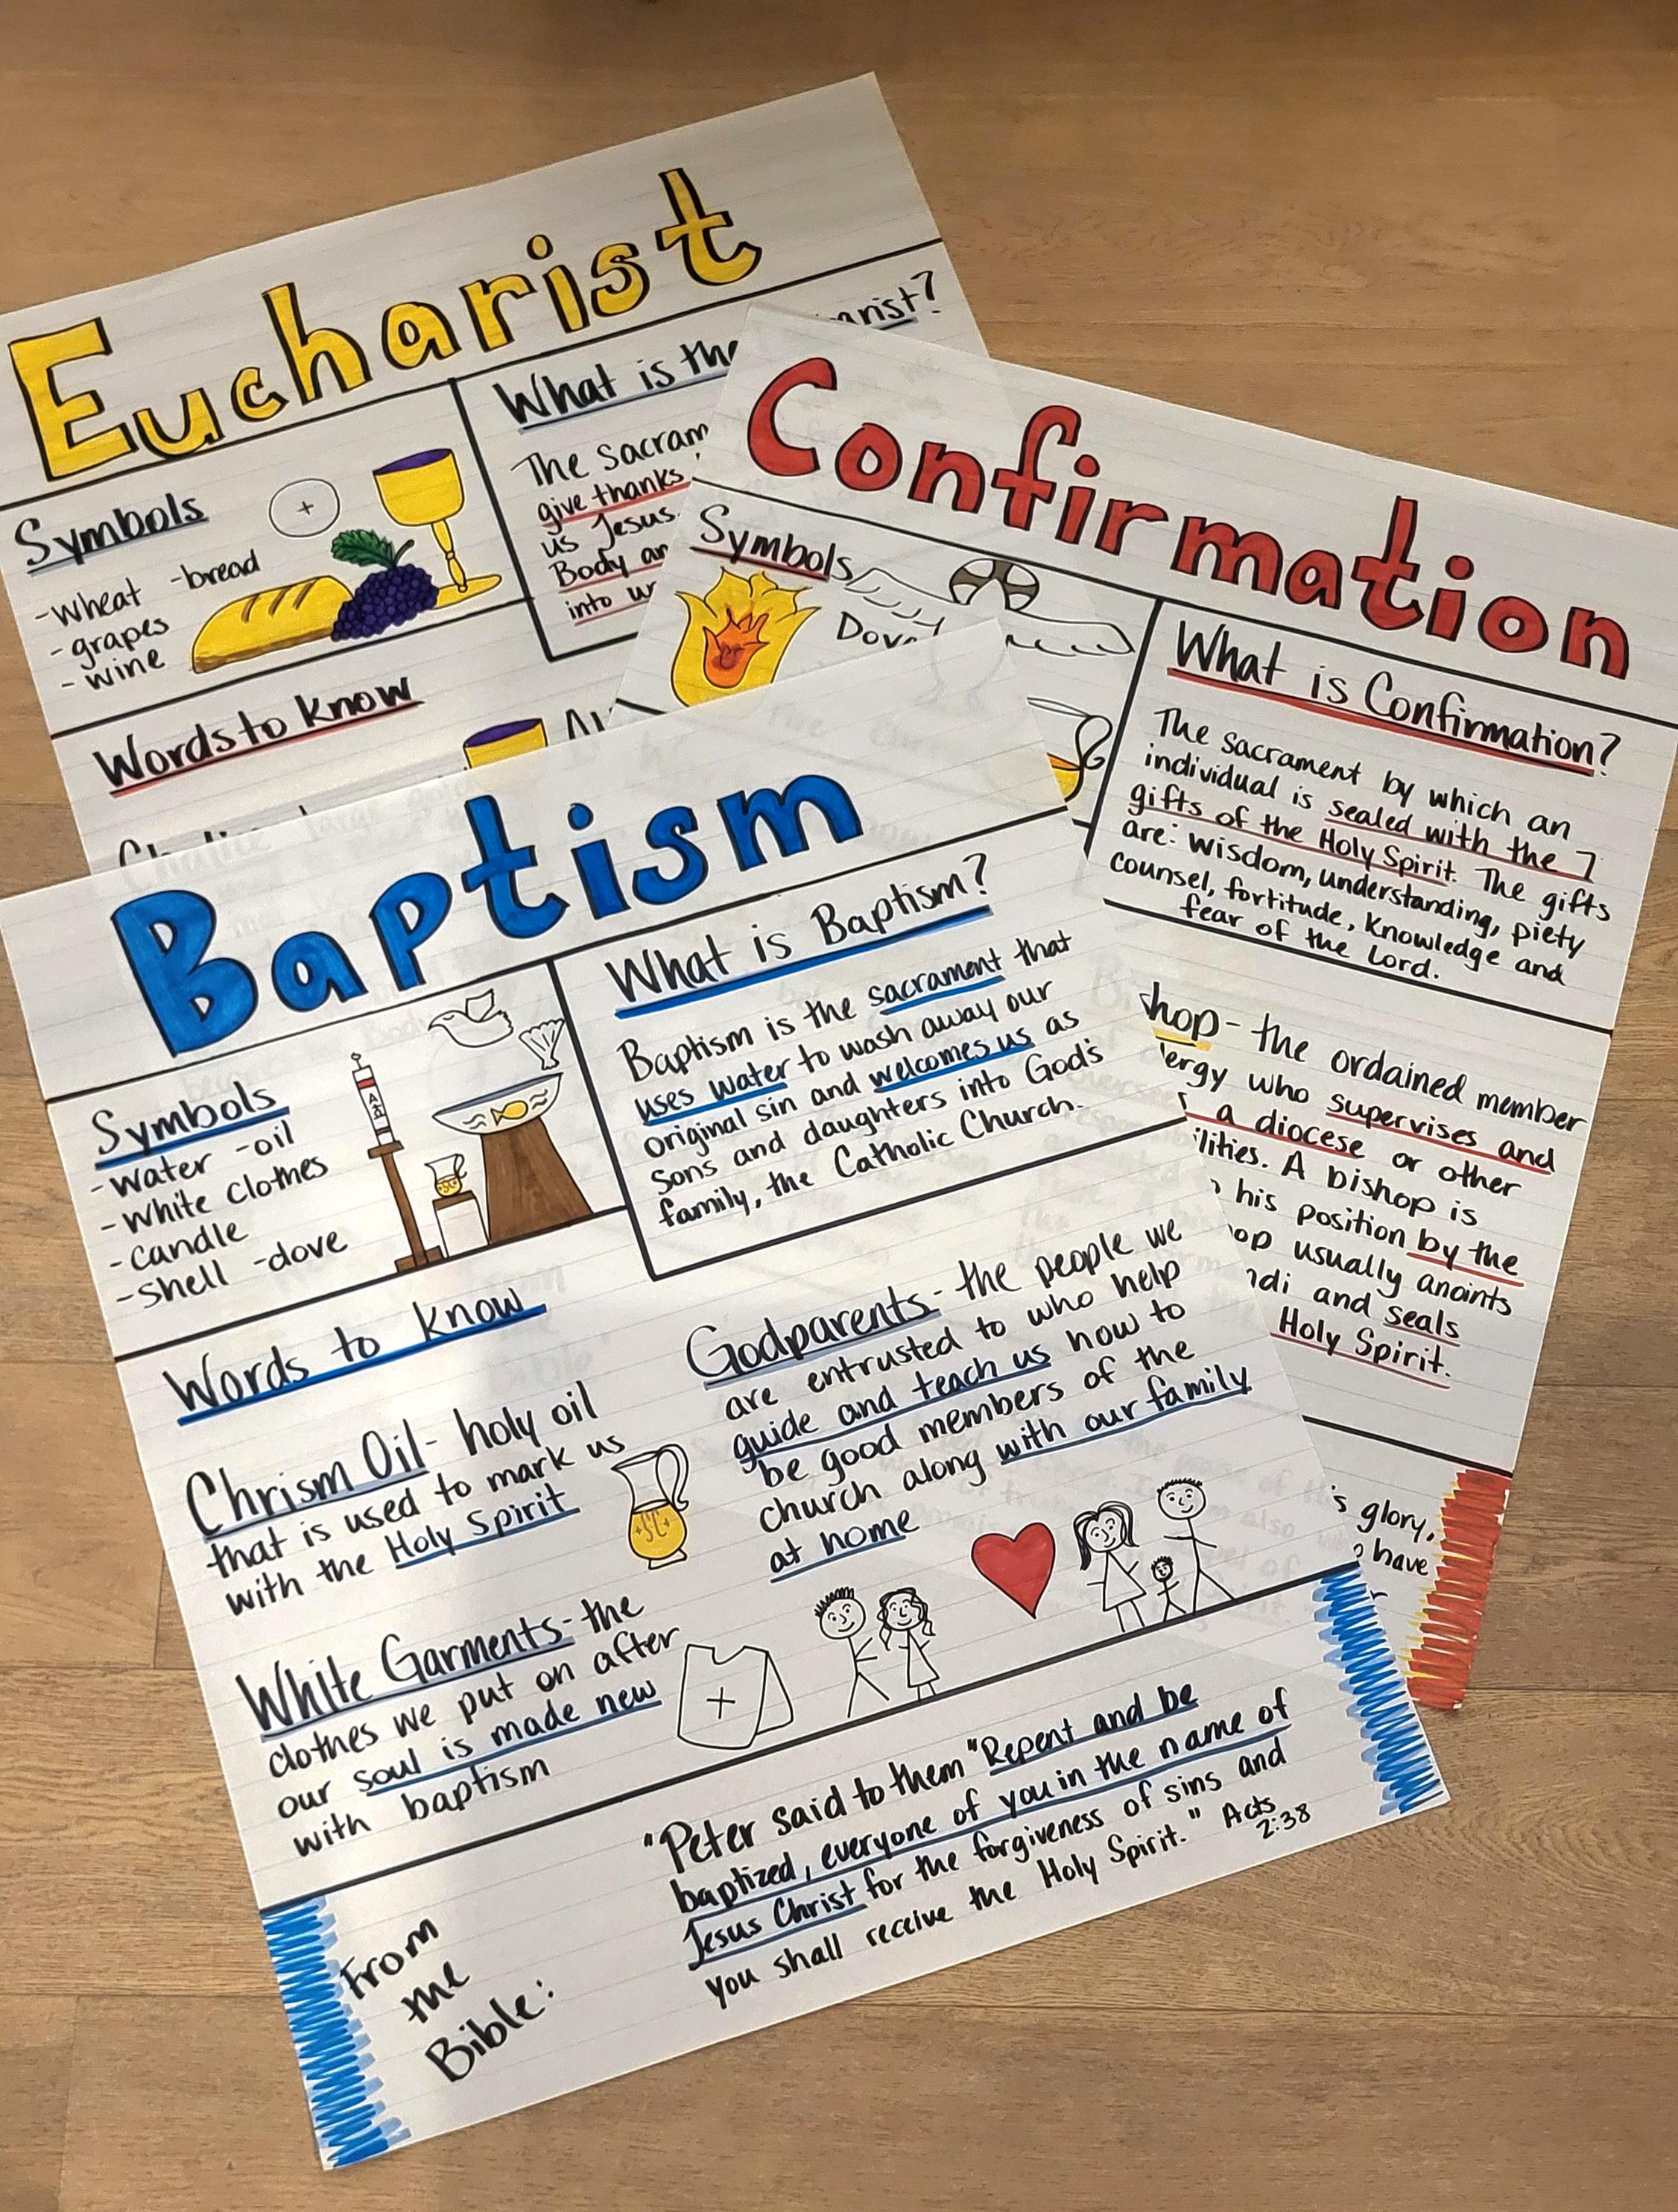 Eucharist
Symbols
-wheat -bread
-grapes
-wine
What is the
The sacram
give thanks
us Jesus.
Body an
into
Words to know
Confirmation
Symbols
Dove
Fire
What is Confirmation?
The sacrament by which an
individual is sealed with the 7
gifts of the Holy Spirit. The gifts
are: wisdom, understanding, piety
counsel, fortitude, knowledge and
fear of the Lord.
shop- the ordained member
lergy who supervises and
a diocese or other
ilities. A bishop is
his position by the
op usually anoints
ndi and seals
Holy Spirit.
's glory,
have
Baptism
Symbols
-water -oil
-white clothes
-candle
-shell -dove
What is Baptism?
Baptism is the sacrament that
uses water to wash away our
original sin and welcomes us as
sons and daughters into God's
family, the Catholic Church.
Words to know
Chrism Oil- holy oil
that is used to mark us
with the Holy Spirit
SC
White Garments- the
clothes we put on after
our soul is made new
with baptism
Godparents- the people we
are entrusted to who help
guide and teach us how to
be good members of the
church along with our family
at home
From
the
Bible:
"Peter said to them "Repent and be
baptized, everyone of you in the name of
Jesus Christ for the forgiveness of sins and
you shall receive the Holy Spirit." Acts
2:38